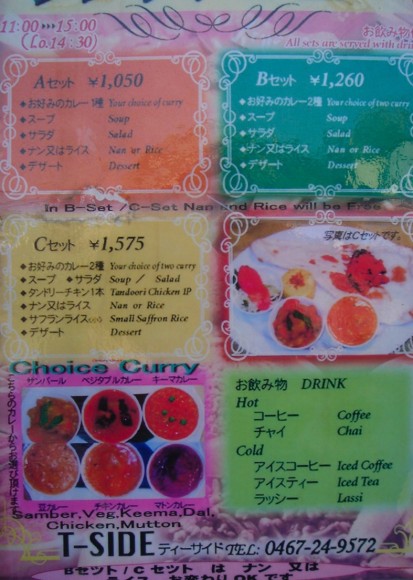 11:00▸▸▸15:00
(Lo.14:30)
お飲み物
All sets are served with
Aセット ￥1,050
◆お好みのカレー1種 Your choice of curry
◆スープ Soup
◆サラダ Salad
◆ナン又はライス Nan or Rice
◆デザート Dessert
Bセット ￥1,260
◆お好みのカレー2種 Your choice of two curry
◆スープ Soup
◆サラダ Salad
◆ナン又はライス Nan or Rice
◆デザート Dessert
In B-Set /C-Set Nan and Rice will be Free
Cセット ￥1,575
◆お好みのカレー2種 Your choice of two curry
◆スープ ◆サラダ Soup / Salad
◆タンドリーチキン1本 Tandoori Chicken 1P
◆ナン又はライス Nan or Rice
◆サフランライス Small Saffron Rice
◆デザート Dessert
写真はCセットです。
Choice Curry
サンバール ベジタブルカレー キーマカレー
豆カレー チキンカレー マトンカレー
Samber,Veg,Keema,Dal,
Chicken,Mutton
お飲み物 DRINK
Hot
コーヒー Coffee
チャイ Chai
Cold
アイスコーヒー Iced Coffee
アイスティー Iced Tea
ラッシー Lassi
T-SIDE ティーサイド TEL: 0467-24-9572
Bセット/Cセット は ナン 又は
ライス お変わりOKです